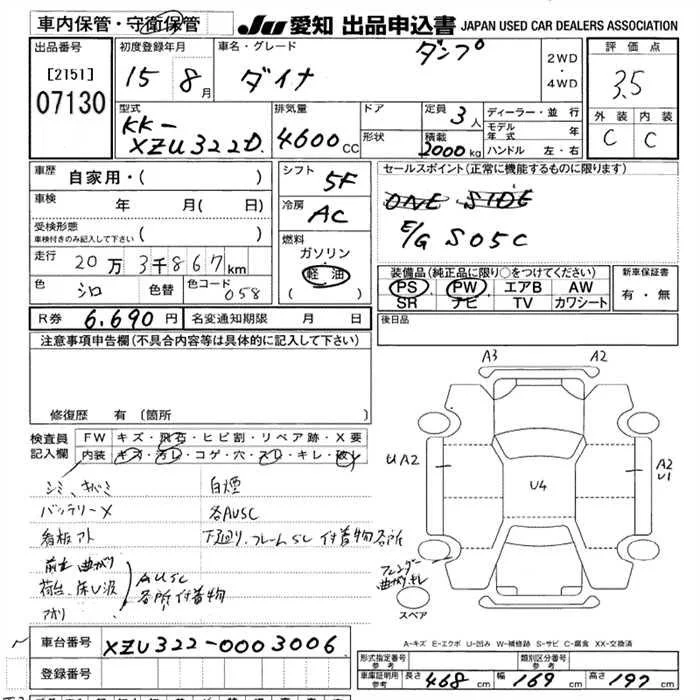 車内保管・守衛保管
JU 愛知 出品申込書 JAPAN USED CAR DEALERS ASSOCIATION
出品番号
[2151]
07130
初度登録年月
15 年 8 月
車名・グレード
ダイナ ダンプ
2WD
・
4WD
評価点
3.5
外装 内装
C C
型式
KK-
XZU322D
排気量
4600 CC
ドア
形状
定員 3人
積載
2000kg
ディーラー・並行
モデル年式 年
ハンドル 左・右
車歴 自家用・( )
車検 年 月( 日)
受検形態
車検付きのみ記入して下さい ( )
走行 20万3千867km
色 シロ 色替 色コード 058
シフト 5F
冷房 AC
燃料
ガソリン
軽油
( )
セールスポイント(正常に機能するものに限ります)
ONE SIDE
E/G S05C
装備品(純正品に限り○をつけてください)
PS PW エアB AW
SR ナビ TV カワシート
新車保証書
有・無
R券 6,690円 名変通知期限 月 日
後日品
注意事項申告欄(不具合内容等は具体的に記入して下さい)
修復歴 有(箇所
検査員
記入欄
FW キズ・飛石・ヒビ割・リペア跡・X要
内装 キズ・汚レ・コゲ・穴・スレ・キレ・破レ
シミ、キバミ 白煙
バッテリーX 各AUSC
看板アト 下廻り、フレームSC 付着物各所
曲がり
荷台、床U波
アオリ
AUSC
各所付着物
A3 A2
UA2
U4
A2
U1
フェンダー
曲がり、キレ
スペア
A-キズ E-エクボ U-凹み W-補修跡 S-サビ C-腐食 XX-交換済
車台番号 XZU322-0003006
登録番号
形式指定番号
参考
類別区分番号
参考
車庫証明用
参考
長さ 468cm 幅 169cm 高さ 197cm